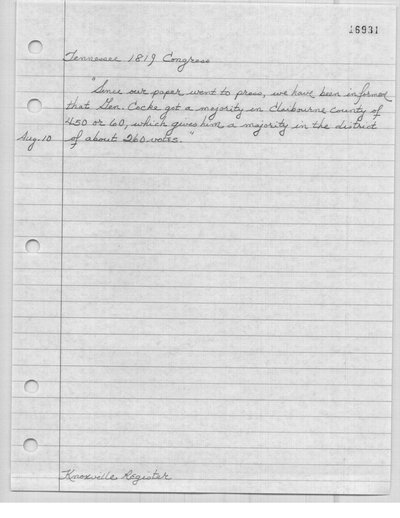 16931
Tennessee 1819 Congress
"Since our paper went to press, we have been informed
that Gen. Cocke got a majority in Claibourne County of
450 or 60, which gives him a majority in the district
Aug. 10 of about 260 votes."
Knoxville Register